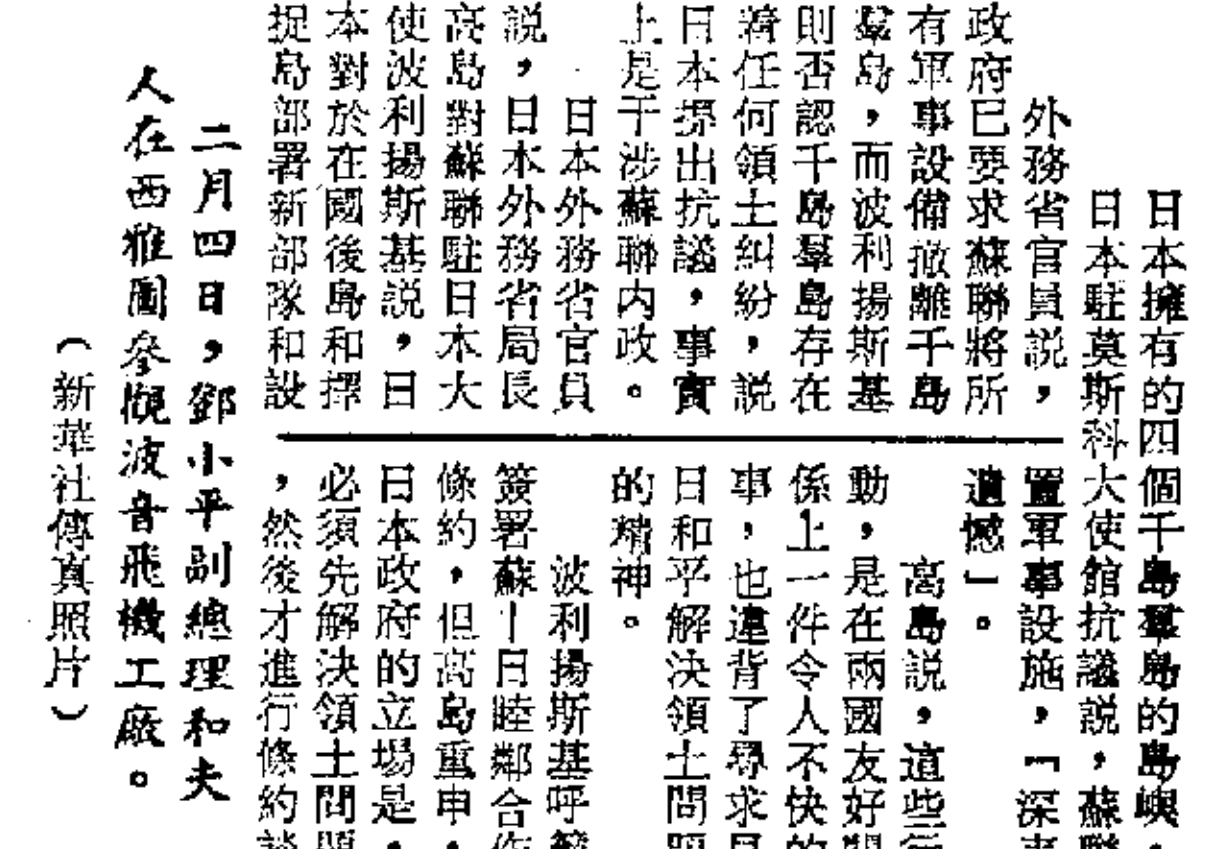 日本擁有的四個千島羣島的島嶼，
日本駐莫斯科大使館抗議説，蘇聯
外務省官員説，
政府已要求蘇聯將所
有軍事設備撤離千島
羣島，而波利揚斯基
則否認千島羣島存在
着任何領土糾紛，説
日本提出抗議，事實
上是干涉蘇聯内政。
日本外務省官員
説，日本外務省局長
高島對蘇聯駐日本大
使波利揚斯基説，日
本對於在國後島和擇
捉島部署新部隊和設
置軍事設施，「深表
遺憾」。
高島説，這些行
動，是在兩國友好關
係上一件令人不快的
事，也違背了尋求
日和平解決領土問題
的精神。
波利揚斯基呼籲
簽署蘇—日睦鄰合作
條約，但高島重申，
日本政府的立場是，
必須先解決領土問題
，然後才進行條約談
二月四日，鄧小平副總理和夫
人在西雅圖參觀波音飛機工廠。
（新華社傳真照片）